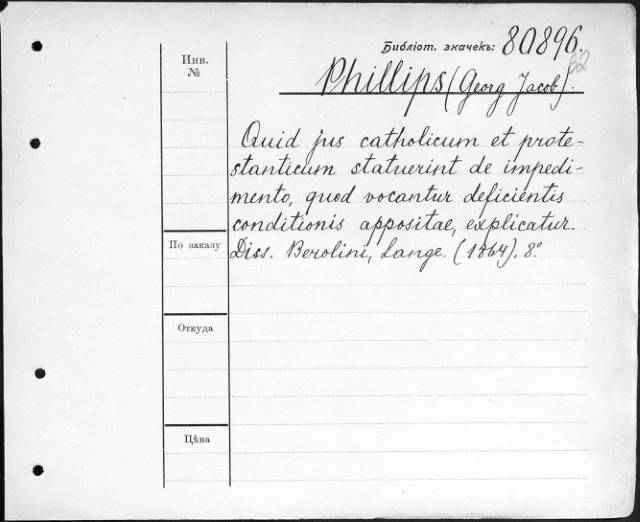 Библіот. значекъ: 80896.
62
Инв.
№
Phillips (Georg Jacob).
Quid jus catholicum et prote-
stanticum statuerint de impedi-
mento, quod vocantur deficientis
conditionis appositae, explicatur.
Diss. Berolini, Lange. (1864). 8°.
По заказу
Откуда
Цѣна